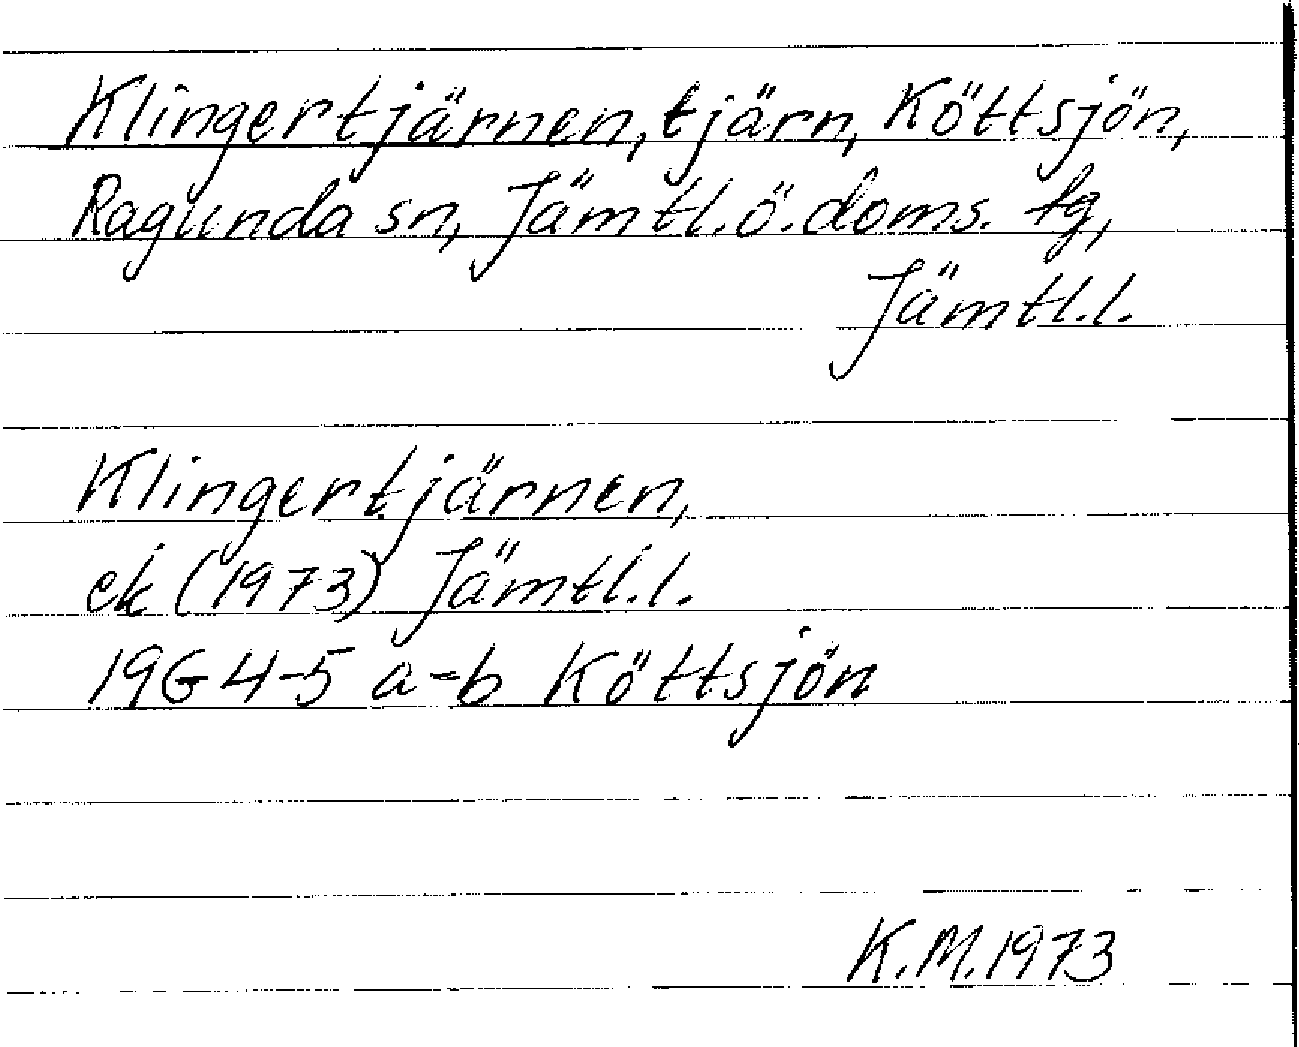 Klingertjärnen, tjärn, Köttsjön,
Ragunda sn, Jämtl.ö.doms. tg,
Jämtl.l.
Klingertjärnen,
ek (1973) Jämtl.l.
19G 4-5 a-b Köttsjön
K.M.1973